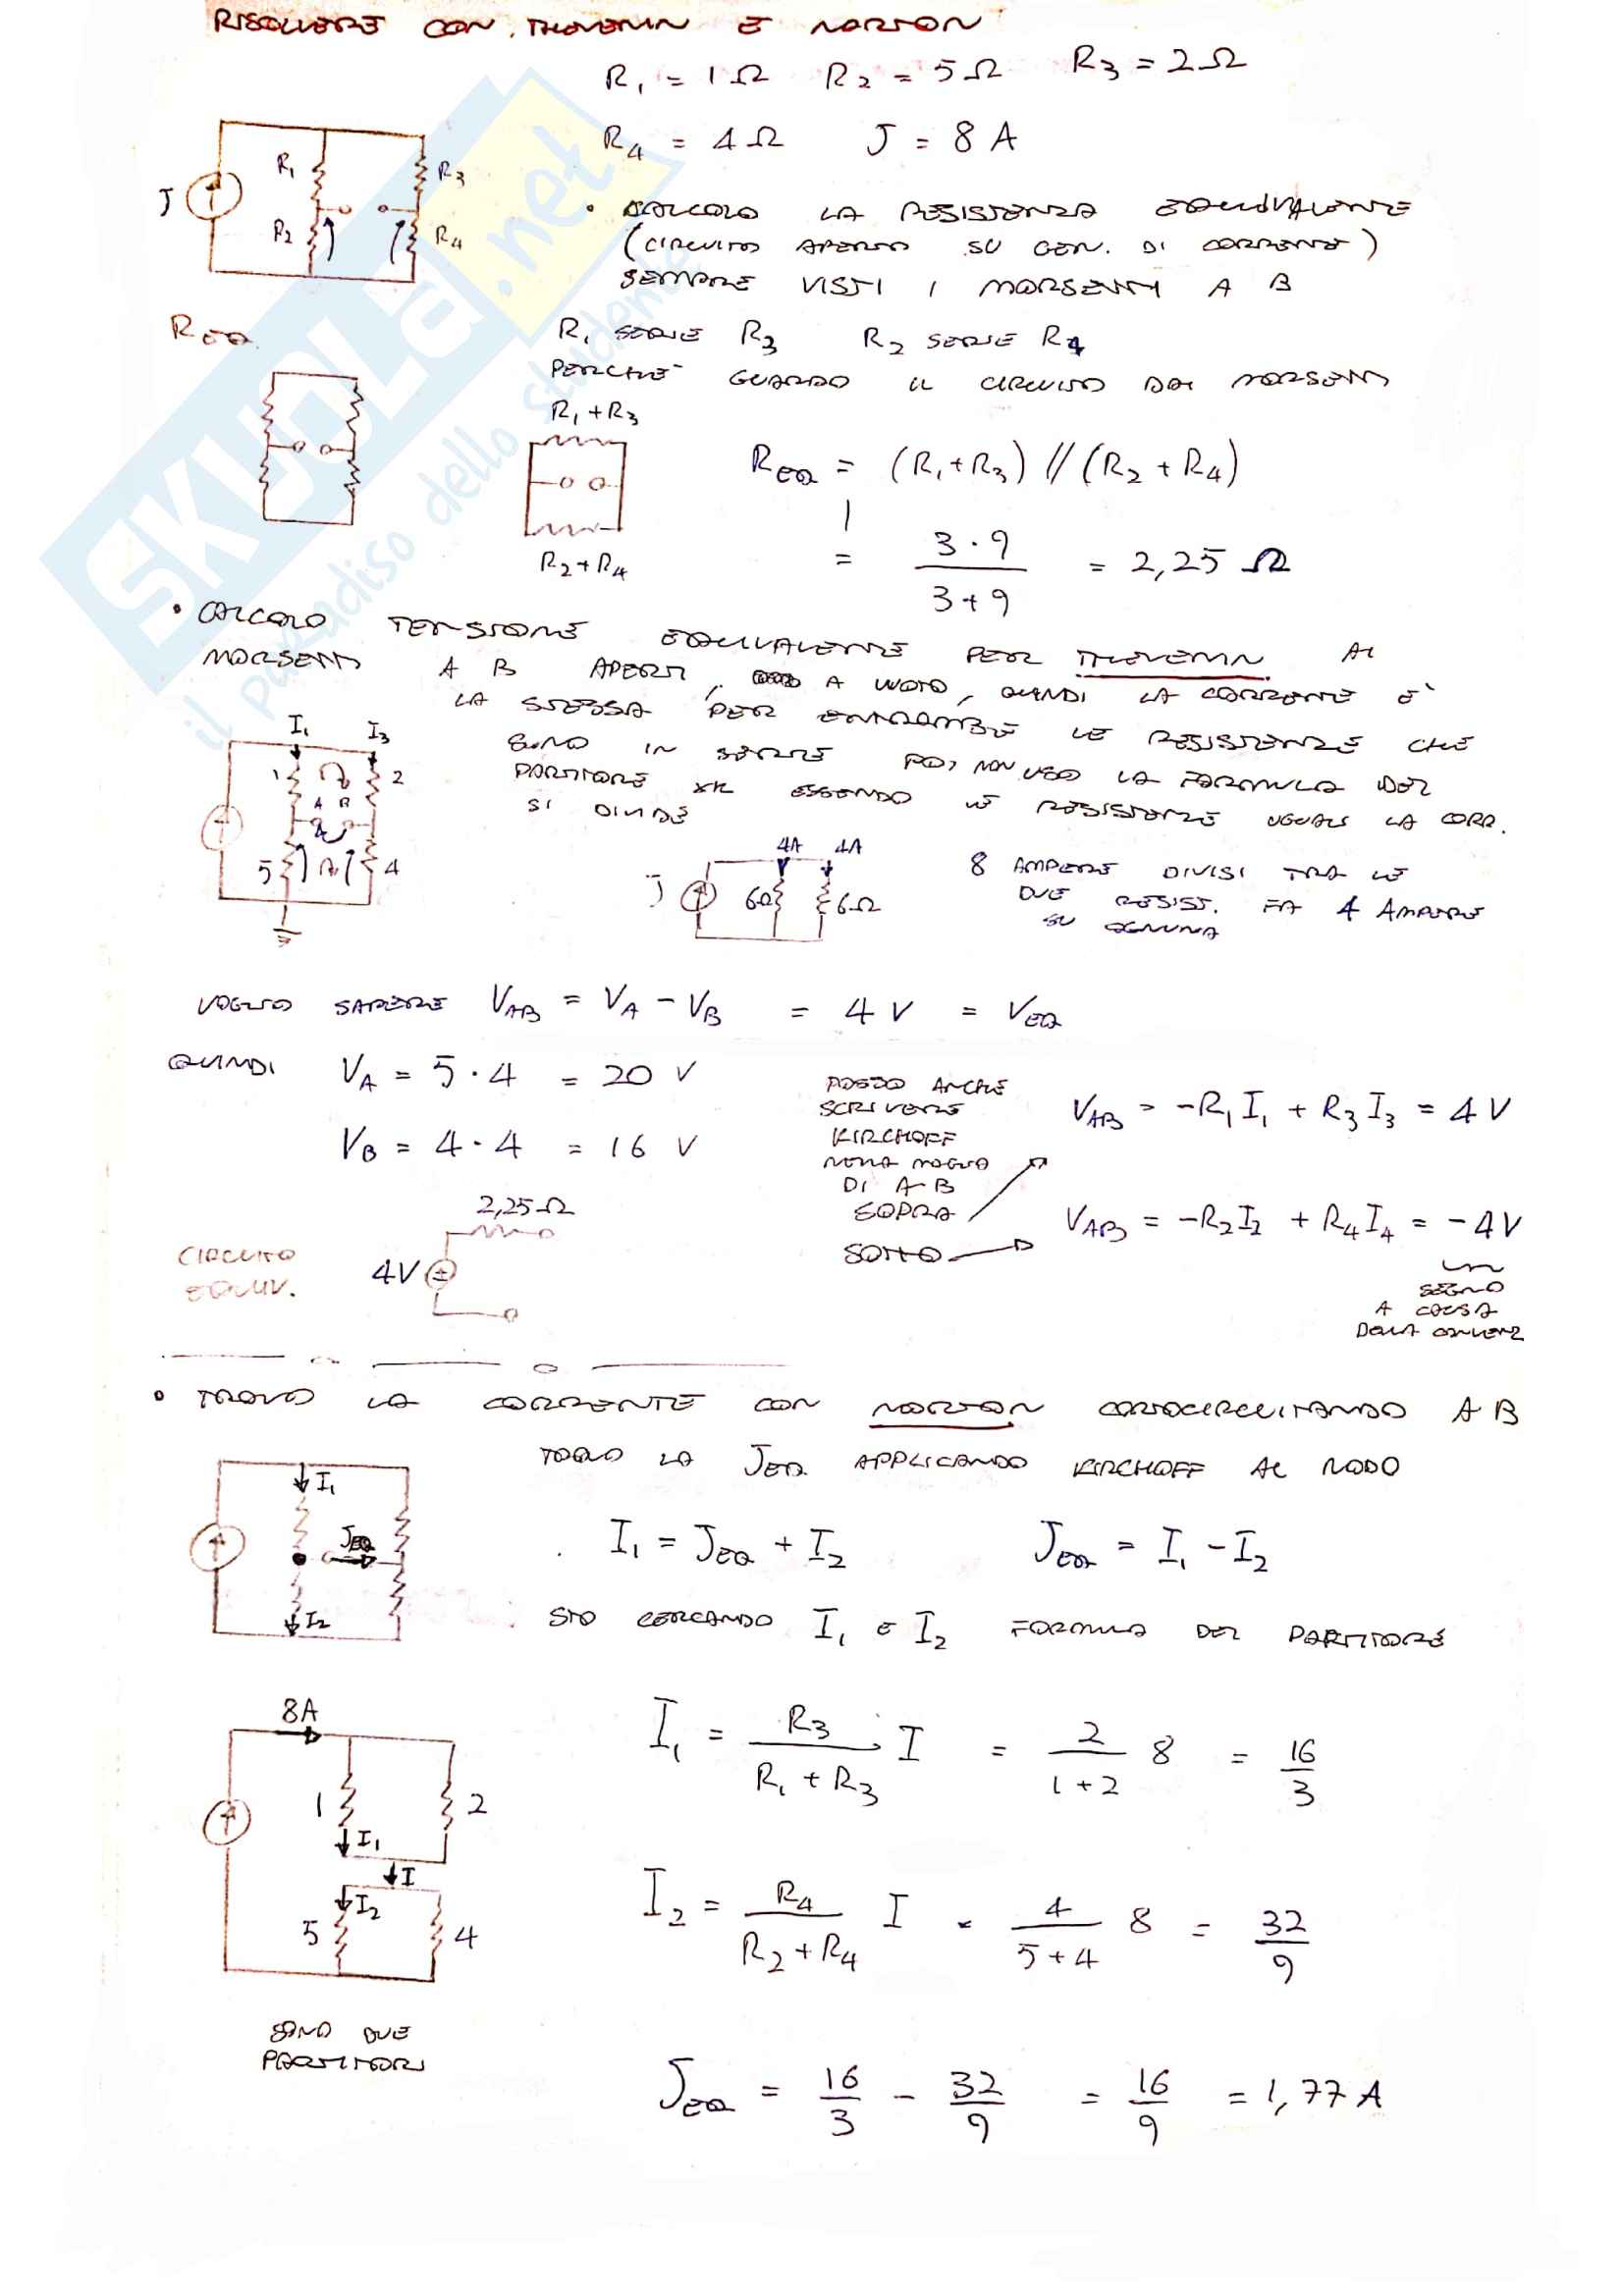 RISOLVERE CON THEVENIN E NORTON
R1 = 1 Ω R2 = 5 Ω R3 = 2 Ω
R4 = 4 Ω J = 8 A
J
R1
R3
R2
R4
• CALCOLO LA RESISTENZA EQUIVALENTE
(CIRCUITO APERTO SU GEN. DI CORRENTE)
SEMPRE VISTI I MORSETTI A B
REQ
R1 SERIE R3 R2 SERIE R4
PERCHE' GUARDO IL CIRCUITO DAI MORSETTI
R1 + R3
R2 + R4
REQ = (R1 + R3) // (R2 + R4)
= 3 · 9 / 3 + 9 = 2,25 Ω
• CALCOLO TENSIONE EQUIVALENTE PER THEVENIN AI
MORSETTI A B APERTI, A VUOTO, QUINDI LA CORRENTE E'
LA STESSA PER ENTRAMBE LE RESISTENZE CHE
SONO IN SERIE POI NON USO LA FORMULA DEL
PARTITORE XK ESSENDO LE RESISTENZE UGUALI LA CORR.
SI DIVIDE
I1 I3
1 2
A B
5 4
J
4A 4A
6Ω 6Ω
8 AMPERE DIVISI TRA LE
DUE RESIST. FA 4 AMPERE
SU OGNUNA
VOGLIO SAPERE VAB = VA - VB = 4 V = VEQ
QUINDI VA = 5 · 4 = 20 V
VB = 4 · 4 = 16 V
POSSO ANCHE
SCRIVERE
KIRCHOFF
NELLA MAGLIA
DI A-B
SOPRA
SOTTO
VAB = -R1 I1 + R3 I3 = 4 V
VAB = -R2 I2 + R4 I4 = - 4 V
SEGNO
A CAUSA
DELLA CONVENZ
CIRCUITO
EQUIV.
2,25 Ω
4V
• TROVO LA CORRENTE CON NORTON CORTOCIRCUITANDO A B
TROVO LA JEQ APPLICANDO KIRCHOFF AL NODO
I1
JEQ
I2
I1 = JEQ + I2 JEQ = I1 - I2
STO CERCANDO I1 E I2 FORMULA DEL PARTITORE
8A
1 2
I1
I
I2
5 4
I1 = R3 / R1 + R3 · I = 2 / 1 + 2 8 = 16 / 3
I2 = R4 / R2 + R4 I = 4 / 5 + 4 8 = 32 / 9
SONO DUE
PARTITORI
JEQ = 16 / 3 - 32 / 9 = 16 / 9 = 1,77 A
SKUOLA.net
il paradiso dello studente